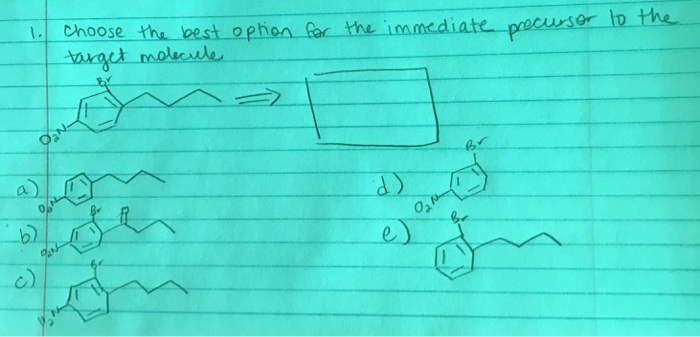 1. Choose the best option for the immediate precursor to the
target molecule
Br
O2N
a)
O2N
b)
Br
O
O2N
c)
Br
H2N
d)
Br
O2N
e)
Br